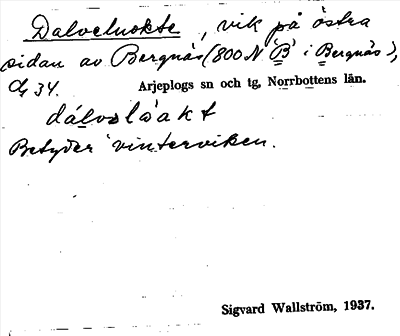 Dalveluokte, vik på östra
sidan av Bergnäs (800 N 'B' i Bergnäs),
34.
Arjeplogs sn och tg, Norrbottens län.
dálvəlu̯åkt
Betyder 'vinterviken.
Sigvard Wallström, 1937.